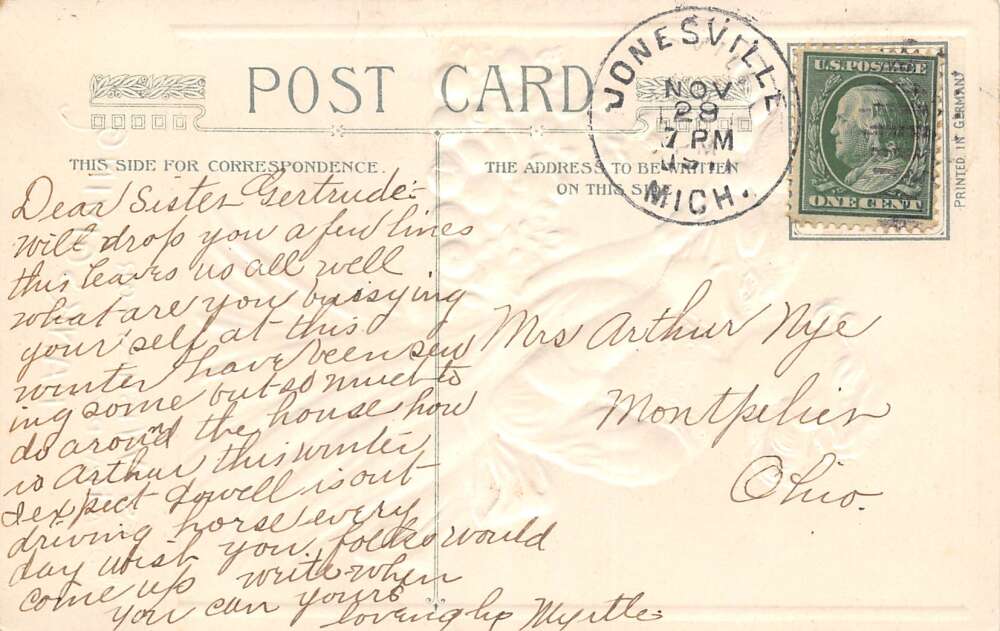 POST CARD
THIS SIDE FOR CORRESPONDENCE.
THE ADDRESS TO BE WRITTEN
ON THIS SIDE
JONESVILLE
NOV
29
7 PM
MICH.
U.S. POSTAGE
ONE CENT
PRINTED IN GERMANY
Dear Sister Gertrude:-
will drop you a few lines
this leaves us all well
what are you buisying
your self at this
winter have been sew
ing some but so much to
do around the house how
is Arthur this winter
I expect Lowell is out
driving horse every
day wish you folks would
come up write when
you can yours
lovingly Myrtle.
Mrs Arthur Nye
Montpelier
Ohio.